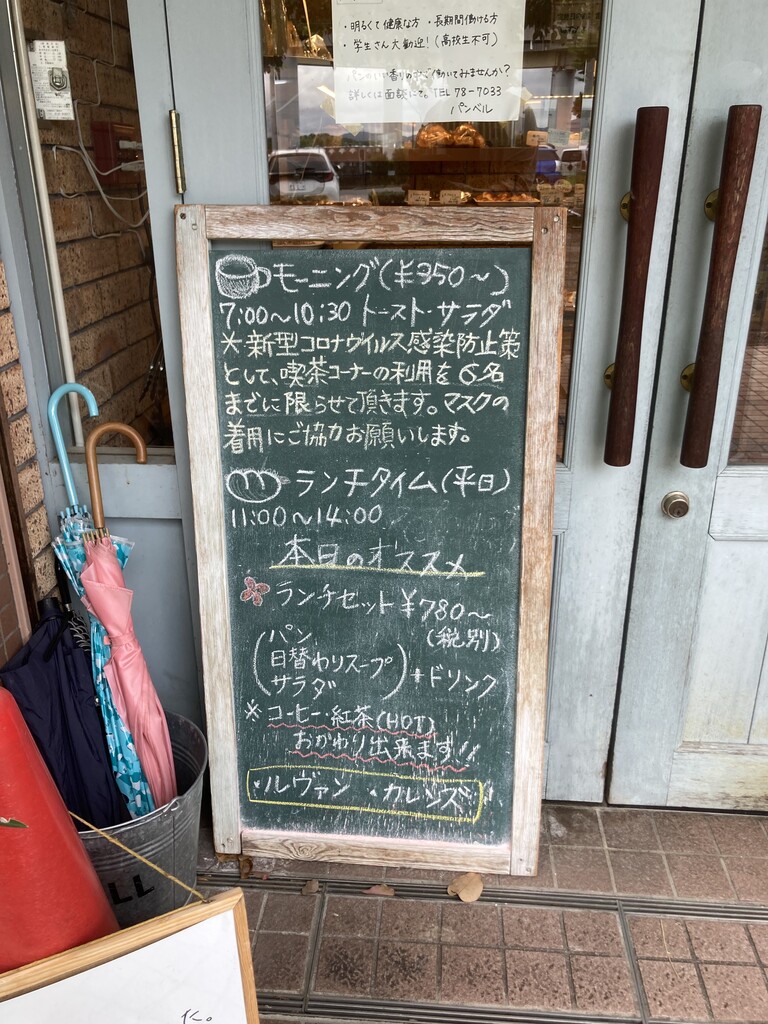 ・明るくて健康な方 ・長期間働ける方
・学生さん大歓迎！(高校生不可)
パンのいい香りの中で働いてみませんか？
詳しくは面談にて。TEL 78-7033
パンベル
モーニング(¥350～)
7:00～10:30 トースト・サラダ
※新型コロナウイルス感染防止策
として、喫茶コーナーの利用を6名
までに限らせて頂きます。マスクの
着用にご協力お願いします。
ランチタイム(平日)
11:00～14:00
本日のオススメ
ランチセット ¥780～
(税別)
(パン
日替わりスープ
サラダ) +ドリンク
※コーヒー・紅茶(HOT)
おかわり出来ます!!
・ルヴァン ・カレンズ
LL
た。